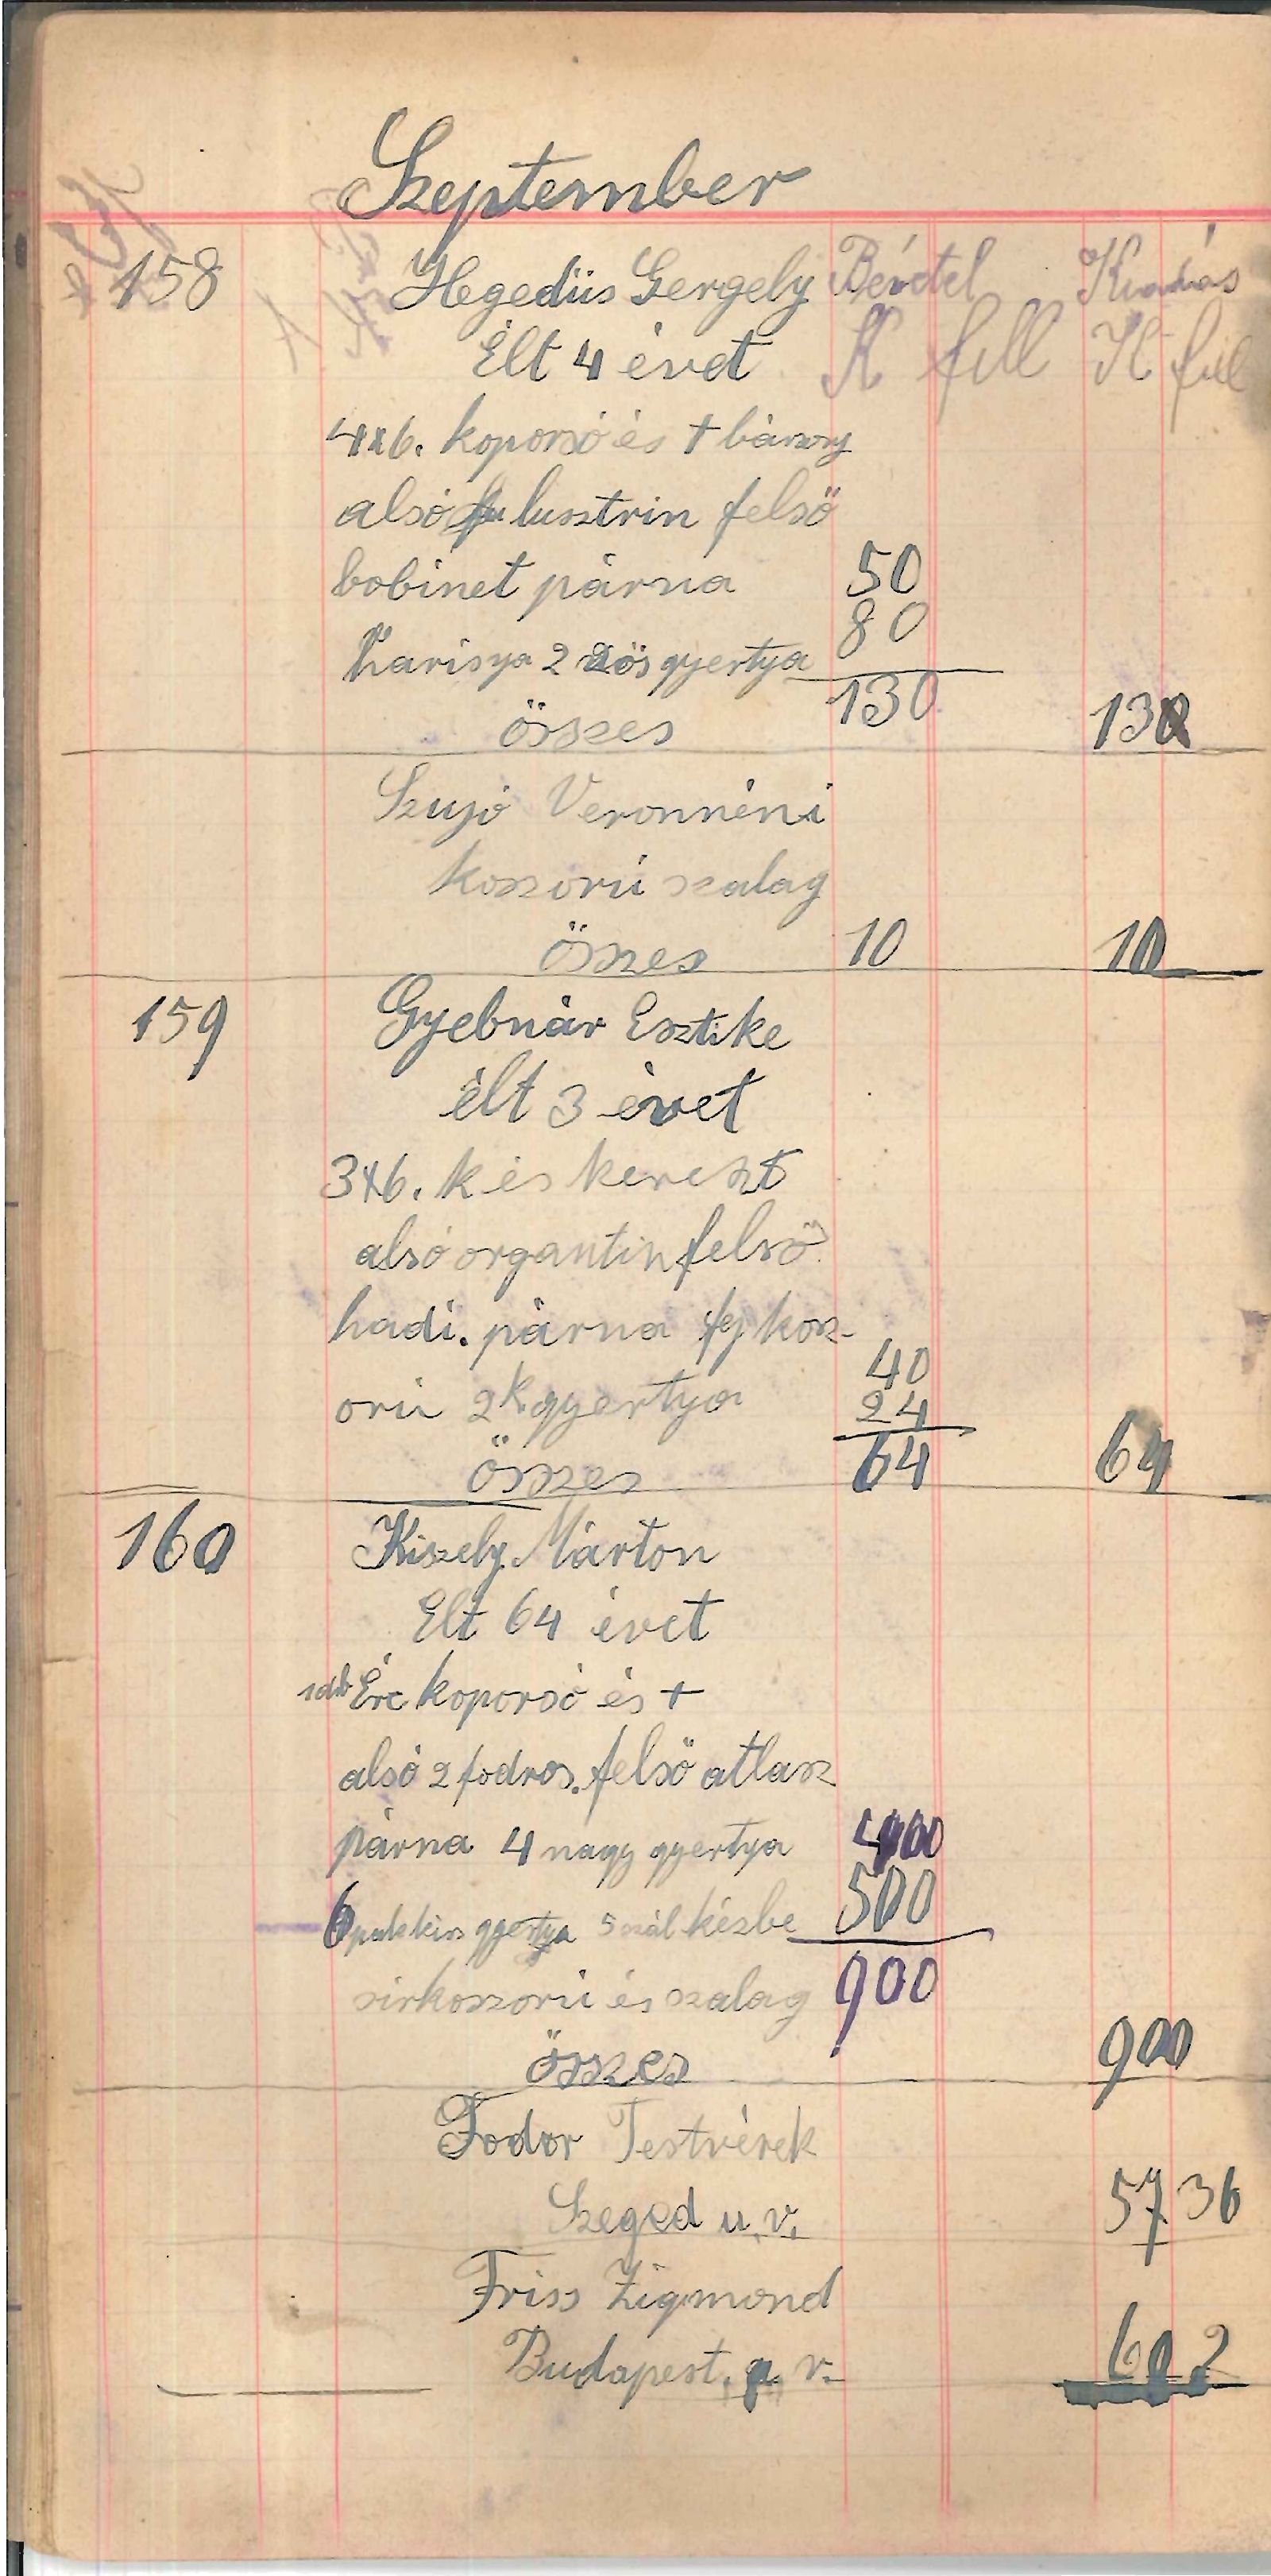 Szeptember
158 Hegedüs Gergely Bévétel Kiadás
Élt 4 évet K fill K fill
4x6. koporsó és + bársony
alsó lusztrin felső
bobinet párna 50
harisnya 2 gyertya 80
130
összes 130
Szujó Veronnéni
koszorú szalag
összes 10 10
159 Gyebnár Esztike
élt 3 évet
3x6. k és kereszt
alsó organtin felső
hadi. párna fej kosz-
orú 2 k gyertya 40
24
összes 64 64
160 Kiszely Márton
Élt 64 évet
1 db Érc koporsó és +
alsó 2 fodros. felső atlasz
párna 4 nagy gyertya 400
6 gyertya 5 szál kézbe 500
sirkoszorú és szalag 900
összes 900
Fodor Testvérek
Szeged u. v. 57 36
Friss Zigmond
Budapest. v. 60 2